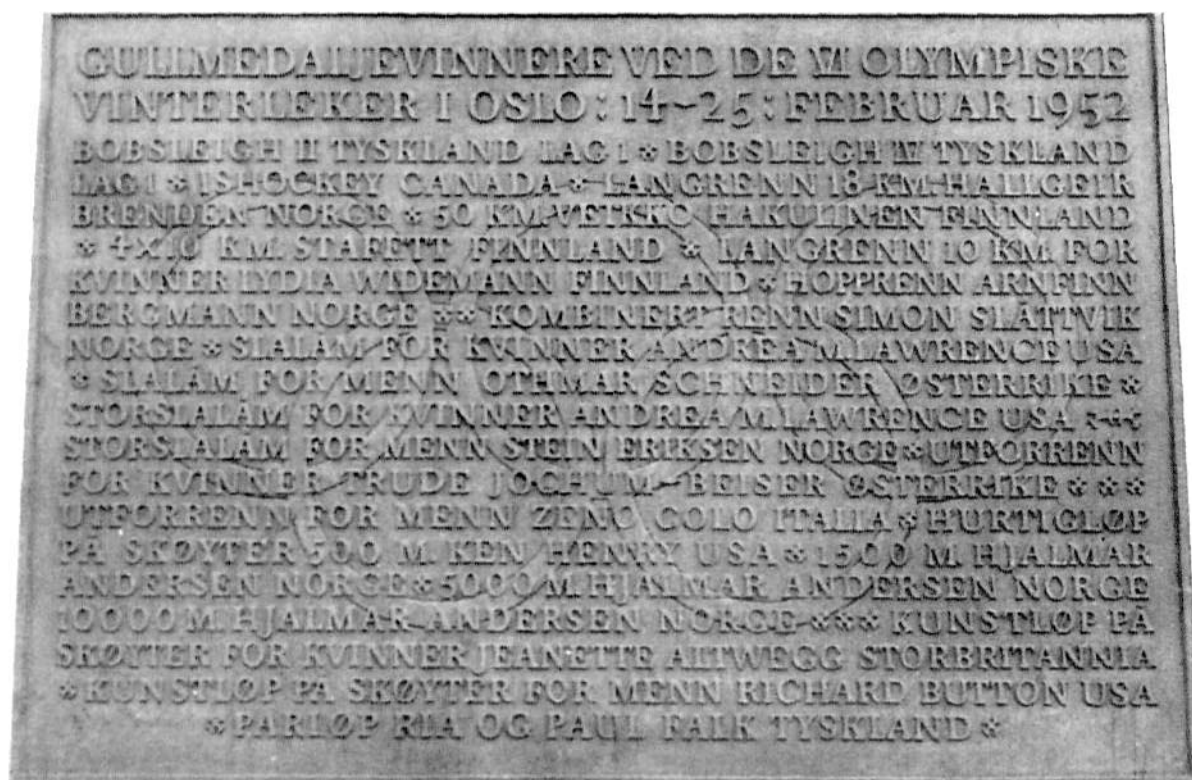 GULLMEDALJEVINNERE VED DE VI OLYMPISKE
VINTERLEKER I OSLO: 14-25: FEBRUAR 1952
BOBSLEIGH II TYSKLAND LAG 1 * BOBSLEIGH IV TYSKLAND
LAG 1 * ISHOCKEY CANADA * LANGRENN 18 KM. HALLGEIR
BRENDEN NORGE * 50 KM. VEIKKO HAKULINEN FINNLAND
* 4X10 KM. STAFETT FINNLAND * LANGRENN 10 KM. FOR
KVINNER LYDIA WIDEMANN FINNLAND * HOPPRENN ARNFINN
BERGMANN NORGE ** KOMBINERT RENN SIMON SLÅTTVIK
NORGE * SLALÅM FOR KVINNER ANDREA M. LAWRENCE USA
* SLALÅM FOR MENN OTHMAR SCHNEIDER ØSTERRIKE *
STORSLALÅM FOR KVINNER ANDREA M. LAWRENCE USA
STORSLALÅM FOR MENN STEIN ERIKSEN NORGE * UTFORRENN
FOR KVINNER TRUDE JOCHUM-BEISER ØSTERRIKE ***
UTFORRENN FOR MENN ZENO COLO ITALIA * HURTIGLØP
PÅ SKØYTER 500 M. KEN HENRY USA * 1500 M. HJALMAR
ANDERSEN NORGE * 5000 M. HJALMAR ANDERSEN NORGE
10000 M. HJALMAR ANDERSEN NORGE *** KUNSTLØP PÅ
SKØYTER FOR KVINNER JEANETTE ALTWEGG STORBRITANNIA
* KUNSTLØP PÅ SKØYTER FOR MENN RICHARD BUTTON USA
* PARLØP RIA OG PAUL FALK TYSKLAND *